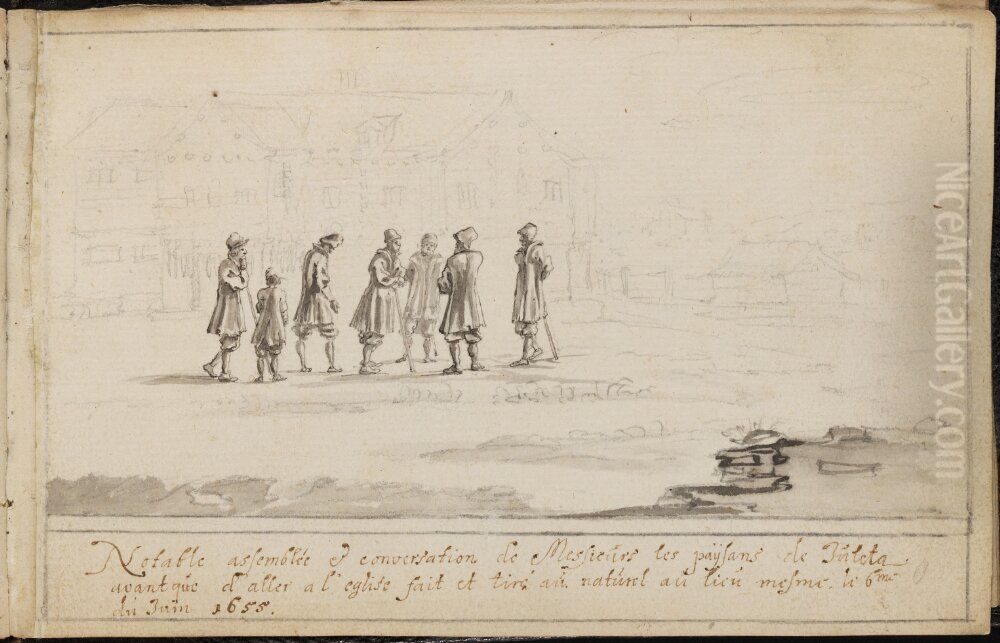 Notable assemblée & conversation de Messieurs les païsans de Juleta
avant que d'aller a l'eglise fait et tiré au naturel au lieu mesme. le 6me
du Juin 1655.
NiceArtGallery.com